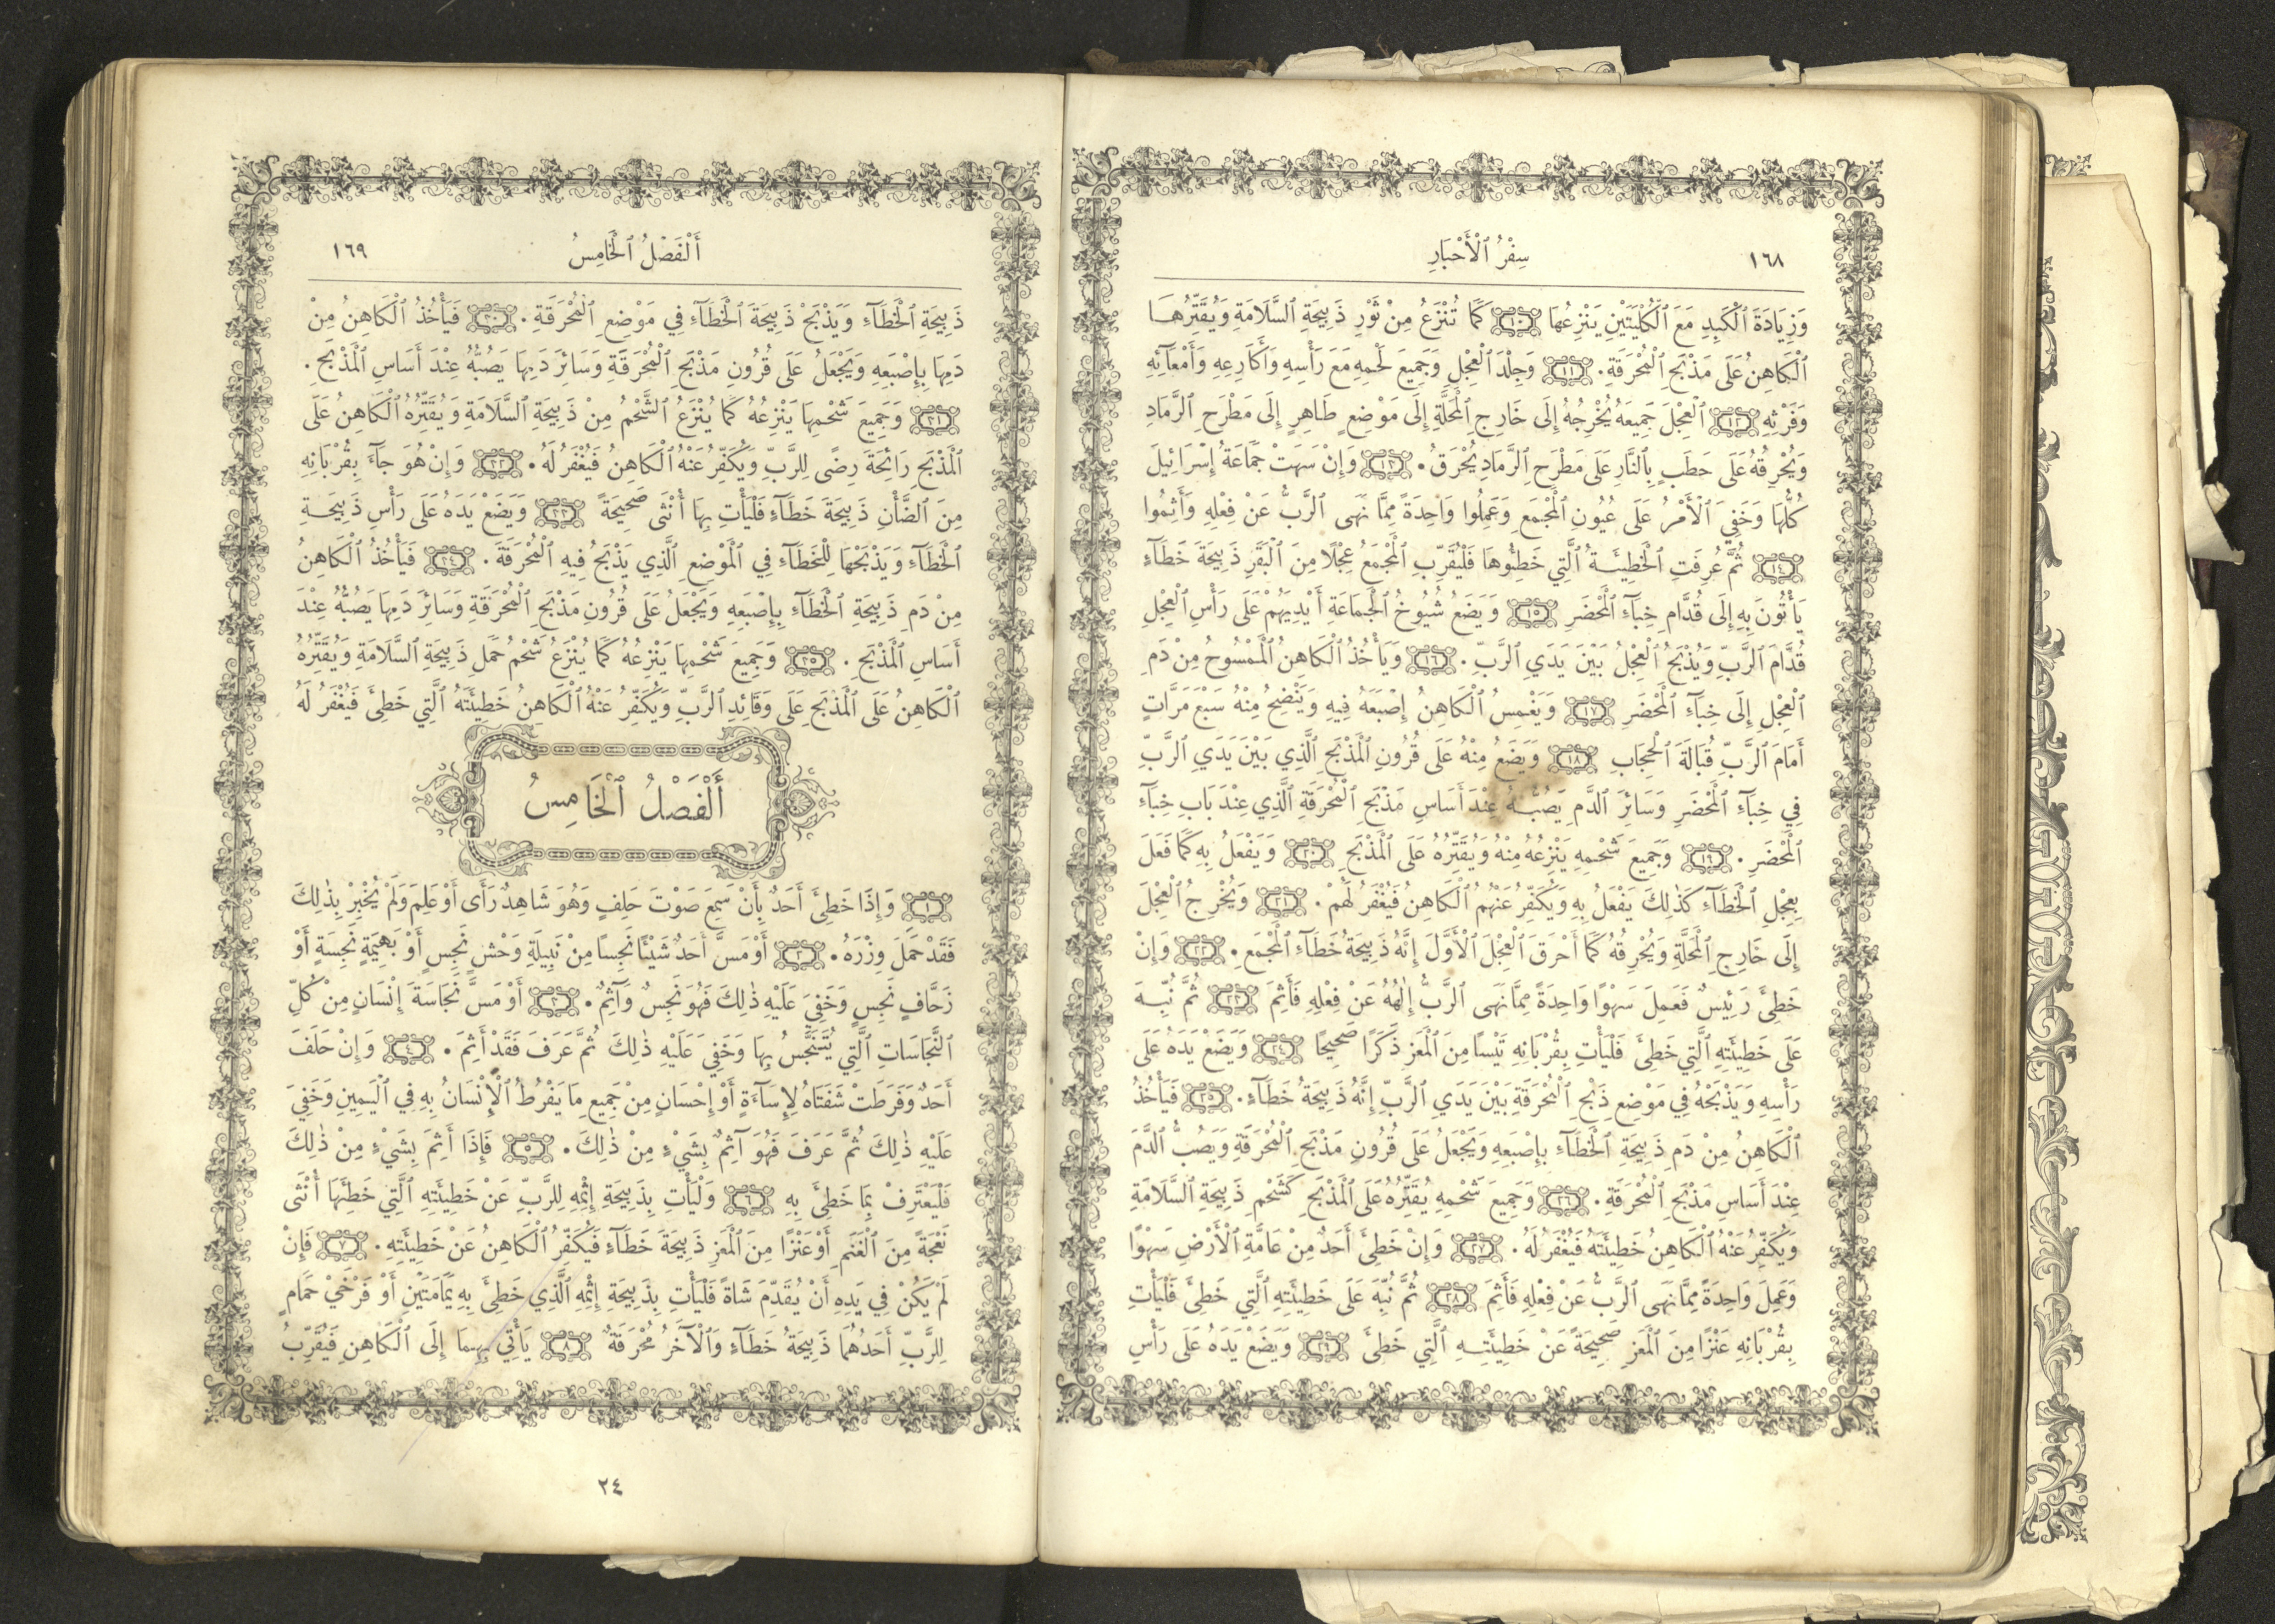 ١٦٨
سِفْرُ ٱلْأَحْبَارِ
وَزِيَادَةَ ٱلْكَبِدِ مَعَ ٱلْكُلْيَتَيْنِ يَنْزِعُهَا ﴿١٠﴾ كَمَا تُنْزَعُ مِنْ ثَوْرِ ذَبِيحَةِ ٱلسَّلَامَةِ وَيُقَتِّرُهَا
ٱلْكَاهِنُ عَلَى مَذْبَحِ ٱلْمُحْرَقَةِ. ﴿١١﴾ وَجِلْدَ ٱلْعِجْلِ وَجَمِيعَ لَحْمِهِ مَعَ رَأْسِهِ وَأَكَارِعِهِ وَأَمْعَآئِهِ
وَفَرْثِهِ ﴿١٢﴾ ٱلْعِجْلَ جَمِيعَهُ يُخْرِجُهُ إِلَى خَارِجِ ٱلْمَحَلَّةِ إِلَى مَوْضِعٍ طَاهِرٍ إِلَى مَطْرَحِ ٱلرَّمَادِ
وَيُحْرِقُهُ عَلَى حَطَبٍ بِٱلنَّارِ عَلَى مَطْرَحِ ٱلرَّمَادِ يُحْرَقُ. ﴿١٣﴾ وَإِنْ سَهَتْ جَمَاعَةُ إِسْرَائِيلَ
كُلُّهَا وَخَفِيَ ٱلْأَمْرُ عَلَى عُيُونِ ٱلْمَجْمَعِ وَعَمِلُوا وَاحِدَةً مِمَّا نَهَى ٱلرَّبُّ عَنْ فِعْلِهِ وَأَثِمُوا
﴿١٤﴾ ثُمَّ عُرِفَتِ ٱلْخَطِيئَةُ ٱلَّتِي خَطِئُوهَا فَلْيُقَرِّبِ ٱلْمَجْمَعُ عِجْلًا مِنَ ٱلْبَقَرِ ذَبِيحَةَ خَطَآءٍ
يَأْتُونَ بِهِ إِلَى قُدَّامِ خِبَآءِ ٱلْمَحْضَرِ ﴿١٥﴾ وَيَضَعُ شُيُوخُ ٱلْجَمَاعَةِ أَيْدِيَهُمْ عَلَى رَأْسِ ٱلْعِجْلِ
قُدَّامَ ٱلرَّبِّ وَيُذْبَحُ ٱلْعِجْلُ بَيْنَ يَدَيِ ٱلرَّبِّ. ﴿١٦﴾ وَيَأْخُذُ ٱلْكَاهِنُ ٱلْمَمْسُوحُ مِنْ دَمِ
ٱلْعِجْلِ إِلَى خِبَآءِ ٱلْمَحْضَرِ ﴿١٧﴾ وَيَغْمِسُ ٱلْكَاهِنُ إِصْبَعَهُ فِيهِ وَيَنْضِحُ مِنْهُ سَبْعَ مَرَّاتٍ
أَمَامَ ٱلرَّبِّ قُبَالَةَ ٱلْحِجَابِ ﴿١٨﴾ وَيَضَعُ مِنْهُ عَلَى قُرُونِ ٱلْمَذْبَحِ ٱلَّذِي بَيْنَ يَدَيِ ٱلرَّبِّ
فِي خِبَآءِ ٱلْمَحْضَرِ وَسَائِرَ ٱلدَّمِ يَصُبُّهُ عِنْدَ أَسَاسِ مَذْبَحِ ٱلْمُحْرَقَةِ ٱلَّذِي عِنْدَ بَابِ خِبَآءِ
ٱلْمَحْضَرِ. ﴿١٩﴾ وَجَمِيعَ شَحْمِهِ يَنْزِعُهُ مِنْهُ وَيُقَتِّرُهُ عَلَى ٱلْمَذْبَحِ ﴿٢٠﴾ وَيَفْعَلُ بِهِ كَمَا فَعَلَ
بِعِجْلِ ٱلْخَطَآءِ كَذٰلِكَ يَفْعَلُ بِهِ وَيُكَفِّرُ عَنْهُمُ ٱلْكَاهِنُ فَيُغْفَرُ لَهُمْ. ﴿٢١﴾ وَيُخْرِجُ ٱلْعِجْلَ
إِلَى خَارِجِ ٱلْمَحَلَّةِ وَيُحْرِقُهُ كَمَا أَحْرَقَ ٱلْعِجْلَ ٱلْأَوَّلَ إِنَّهُ ذَبِيحَةُ خَطَآءِ ٱلْمَجْمَعِ. ﴿٢٢﴾ وَإِنْ
خَطِئَ رَئِيسٌ فَعَمِلَ سَهْوًا وَاحِدَةً مِمَّا نَهَى ٱلرَّبُّ إِلٰهُهُ عَنْ فِعْلِهِ فَأَثِمَ ﴿٢٣﴾ ثُمَّ نُبِّهَ
عَلَى خَطِيئَتِهِ ٱلَّتِي خَطِئَ فَلْيَأْتِ بِقُرْبَانِهِ تَيْسًا مِنَ ٱلْمَعَزِ ذَكَرًا صَحِيحًا ﴿٢٤﴾ وَيَضَعْ يَدَهُ عَلَى
رَأْسِهِ وَيَذْبَحْهُ فِي مَوْضِعِ ذَبْحِ ٱلْمُحْرَقَةِ بَيْنَ يَدَيِ ٱلرَّبِّ إِنَّهُ ذَبِيحَةُ خَطَآءٍ. ﴿٢٥﴾ فَيَأْخُذُ
ٱلْكَاهِنُ مِنْ دَمِ ذَبِيحَةِ ٱلْخَطَآءِ بِإِصْبَعِهِ وَيَجْعَلُ عَلَى قُرُونِ مَذْبَحِ ٱلْمُحْرَقَةِ وَيَصُبُّ ٱلدَّمَ
عِنْدَ أَسَاسِ مَذْبَحِ ٱلْمُحْرَقَةِ. ﴿٢٦﴾ وَجَمِيعَ شَحْمِهِ يُقَتِّرُهُ عَلَى ٱلْمَذْبَحِ كَشَحْمِ ذَبِيحَةِ ٱلسَّلَامَةِ
وَيُكَفِّرُ عَنْهُ ٱلْكَاهِنُ خَطِيئَتَهُ فَيُغْفَرُ لَهُ. ﴿٢٧﴾ وَإِنْ خَطِئَ أَحَدٌ مِنْ عَامَّةِ ٱلْأَرْضِ سَهْوًا
وَعَمِلَ وَاحِدَةً مِمَّا نَهَى ٱلرَّبُّ عَنْ فِعْلِهِ فَأَثِمَ ﴿٢٨﴾ ثُمَّ نُبِّهَ عَلَى خَطِيئَتِهِ ٱلَّتِي خَطِئَ فَلْيَأْتِ
بِقُرْبَانِهِ عَنْزًا مِنَ ٱلْمَعَزِ صَحِيحَةً عَنْ خَطِيئَتِهِ ٱلَّتِي خَطِئَ ﴿٢٩﴾ وَيَضَعْ يَدَهُ عَلَى رَأْسِ
أَلْفَصْلُ ٱلْخَامِسُ
١٦٩
ذَبِيحَةِ ٱلْخَطَآءِ وَيَذْبَحْ ذَبِيحَةَ ٱلْخَطَآءِ فِي مَوْضِعِ ٱلْمُحْرَقَةِ. ﴿٣٠﴾ فَيَأْخُذُ ٱلْكَاهِنُ مِنْ
دَمِهَا بِإِصْبَعِهِ وَيَجْعَلُ عَلَى قُرُونِ مَذْبَحِ ٱلْمُحْرَقَةِ وَسَائِرَ دَمِهَا يَصُبُّهُ عِنْدَ أَسَاسِ ٱلْمَذْبَحِ.
﴿٣١﴾ وَجَمِيعَ شَحْمِهَا يَنْزِعُهُ كَمَا يُنْزَعُ ٱلشَّحْمُ مِنْ ذَبِيحَةِ ٱلسَّلَامَةِ وَيُقَتِّرُهُ ٱلْكَاهِنُ عَلَى
ٱلْمَذْبَحِ رَائِحَةَ رِضًى لِلرَّبِّ وَيُكَفِّرُ عَنْهُ ٱلْكَاهِنُ فَيُغْفَرُ لَهُ. ﴿٣٢﴾ وَإِنْ هُوَ جَآءَ بِقُرْبَانِهِ
مِنَ ٱلضَّأْنِ ذَبِيحَةَ خَطَآءٍ فَلْيَأْتِ بِهَا أُنْثَى صَحِيحَةً ﴿٣٣﴾ وَيَضَعْ يَدَهُ عَلَى رَأْسِ ذَبِيحَةِ
ٱلْخَطَآءِ وَيَذْبَحْهَا لِلْخَطَآءِ فِي ٱلْمَوْضِعِ ٱلَّذِي يَذْبَحُ فِيهِ ٱلْمُحْرَقَةَ. ﴿٣٤﴾ فَيَأْخُذُ ٱلْكَاهِنُ
مِنْ دَمِ ذَبِيحَةِ ٱلْخَطَآءِ بِإِصْبَعِهِ وَيَجْعَلُ عَلَى قُرُونِ مَذْبَحِ ٱلْمُحْرَقَةِ وَسَائِرَ دَمِهَا يَصُبُّهُ عِنْدَ
أَسَاسِ ٱلْمَذْبَحِ. ﴿٣٥﴾ وَجَمِيعَ شَحْمِهَا يَنْزِعُهُ كَمَا يُنْزَعُ شَحْمُ حَمَلِ ذَبِيحَةِ ٱلسَّلَامَةِ وَيُقَتِّرُهُ
ٱلْكَاهِنُ عَلَى ٱلْمَذْبَحِ عَلَى وَقَائِدِ ٱلرَّبِّ وَيُكَفِّرُ عَنْهُ ٱلْكَاهِنُ خَطِيئَتَهُ ٱلَّتِي خَطِئَ فَيُغْفَرُ لَهُ
أَلْفَصْلُ ٱلْخَامِسُ
﴿١﴾ وَإِذَا خَطِئَ أَحَدٌ بِأَنْ سَمِعَ صَوْتَ حَلِفٍ وَهُوَ شَاهِدٌ رَأَى أَوْ عَلِمَ وَلَمْ يُخْبِرْ بِذٰلِكَ
فَقَدْ حَمَلَ وِزْرَهُ. ﴿٢﴾ أَوْ مَسَّ أَحَدٌ شَيْئًا نَجِسًا مِنْ نَبِيلَةِ وَحْشٍ نَجِسٍ أَوْ بَهِيمَةٍ نَجِسَةٍ أَوْ
زَحَّافٍ نَجِسٍ وَخَفِيَ عَلَيْهِ ذٰلِكَ فَهُوَ نَجِسٌ وَآثِمٌ. ﴿٣﴾ أَوْ مَسَّ نَجَاسَةَ إِنْسَانٍ مِنْ كُلِّ
ٱلنَّجَاسَاتِ ٱلَّتِي يُتَنَجَّسُ بِهَا وَخَفِيَ عَلَيْهِ ذٰلِكَ ثُمَّ عَرَفَ فَقَدْ أَثِمَ. ﴿٤﴾ وَإِنْ حَلَفَ
أَحَدٌ وَفَرَطَتْ شَفَتَاهُ لِإِسَآءَةٍ أَوْ إِحْسَانٍ مِنْ جَمِيعِ مَا يَفْرُطُ ٱلْإِنْسَانُ بِهِ فِي ٱلْيَمِينِ وَخَفِيَ
عَلَيْهِ ذٰلِكَ ثُمَّ عَرَفَ فَهُوَ آثِمٌ بِشَيْءٍ مِنْ ذٰلِكَ. ﴿٥﴾ فَإِذَا أَثِمَ بِشَيْءٍ مِنْ ذٰلِكَ
فَلْيَعْتَرِفْ بِمَا خَطِئَ بِهِ ﴿٦﴾ وَلْيَأْتِ بِذَبِيحَةِ إِثْمِهِ لِلرَّبِّ عَنْ خَطِيئَتِهِ ٱلَّتِي خَطِئَهَا أُنْثَى
نَعْجَةً مِنَ ٱلْغَنَمِ أَوْ عَنْزًا مِنَ ٱلْمَعَزِ ذَبِيحَةَ خَطَآءٍ فَيُكَفِّرُ ٱلْكَاهِنُ عَنْ خَطِيئَتِهِ. ﴿٧﴾ فَإِنْ
لَمْ يَكُنْ فِي يَدِهِ أَنْ يُقَدِّمَ شَاةً فَلْيَأْتِ بِذَبِيحَةِ إِثْمِهِ ٱلَّذِي خَطِئَ بِهِ يَمَامَتَيْنِ أَوْ فَرْخَيْ حَمَامٍ
لِلرَّبِّ أَحَدُهُمَا ذَبِيحَةُ خَطَآءٍ وَٱلْآخَرُ مُحْرَقَةٌ ﴿٨﴾ يَأْتِي بِهِمَا إِلَى ٱلْكَاهِنِ فَيُقَرِّبُ
٢٤